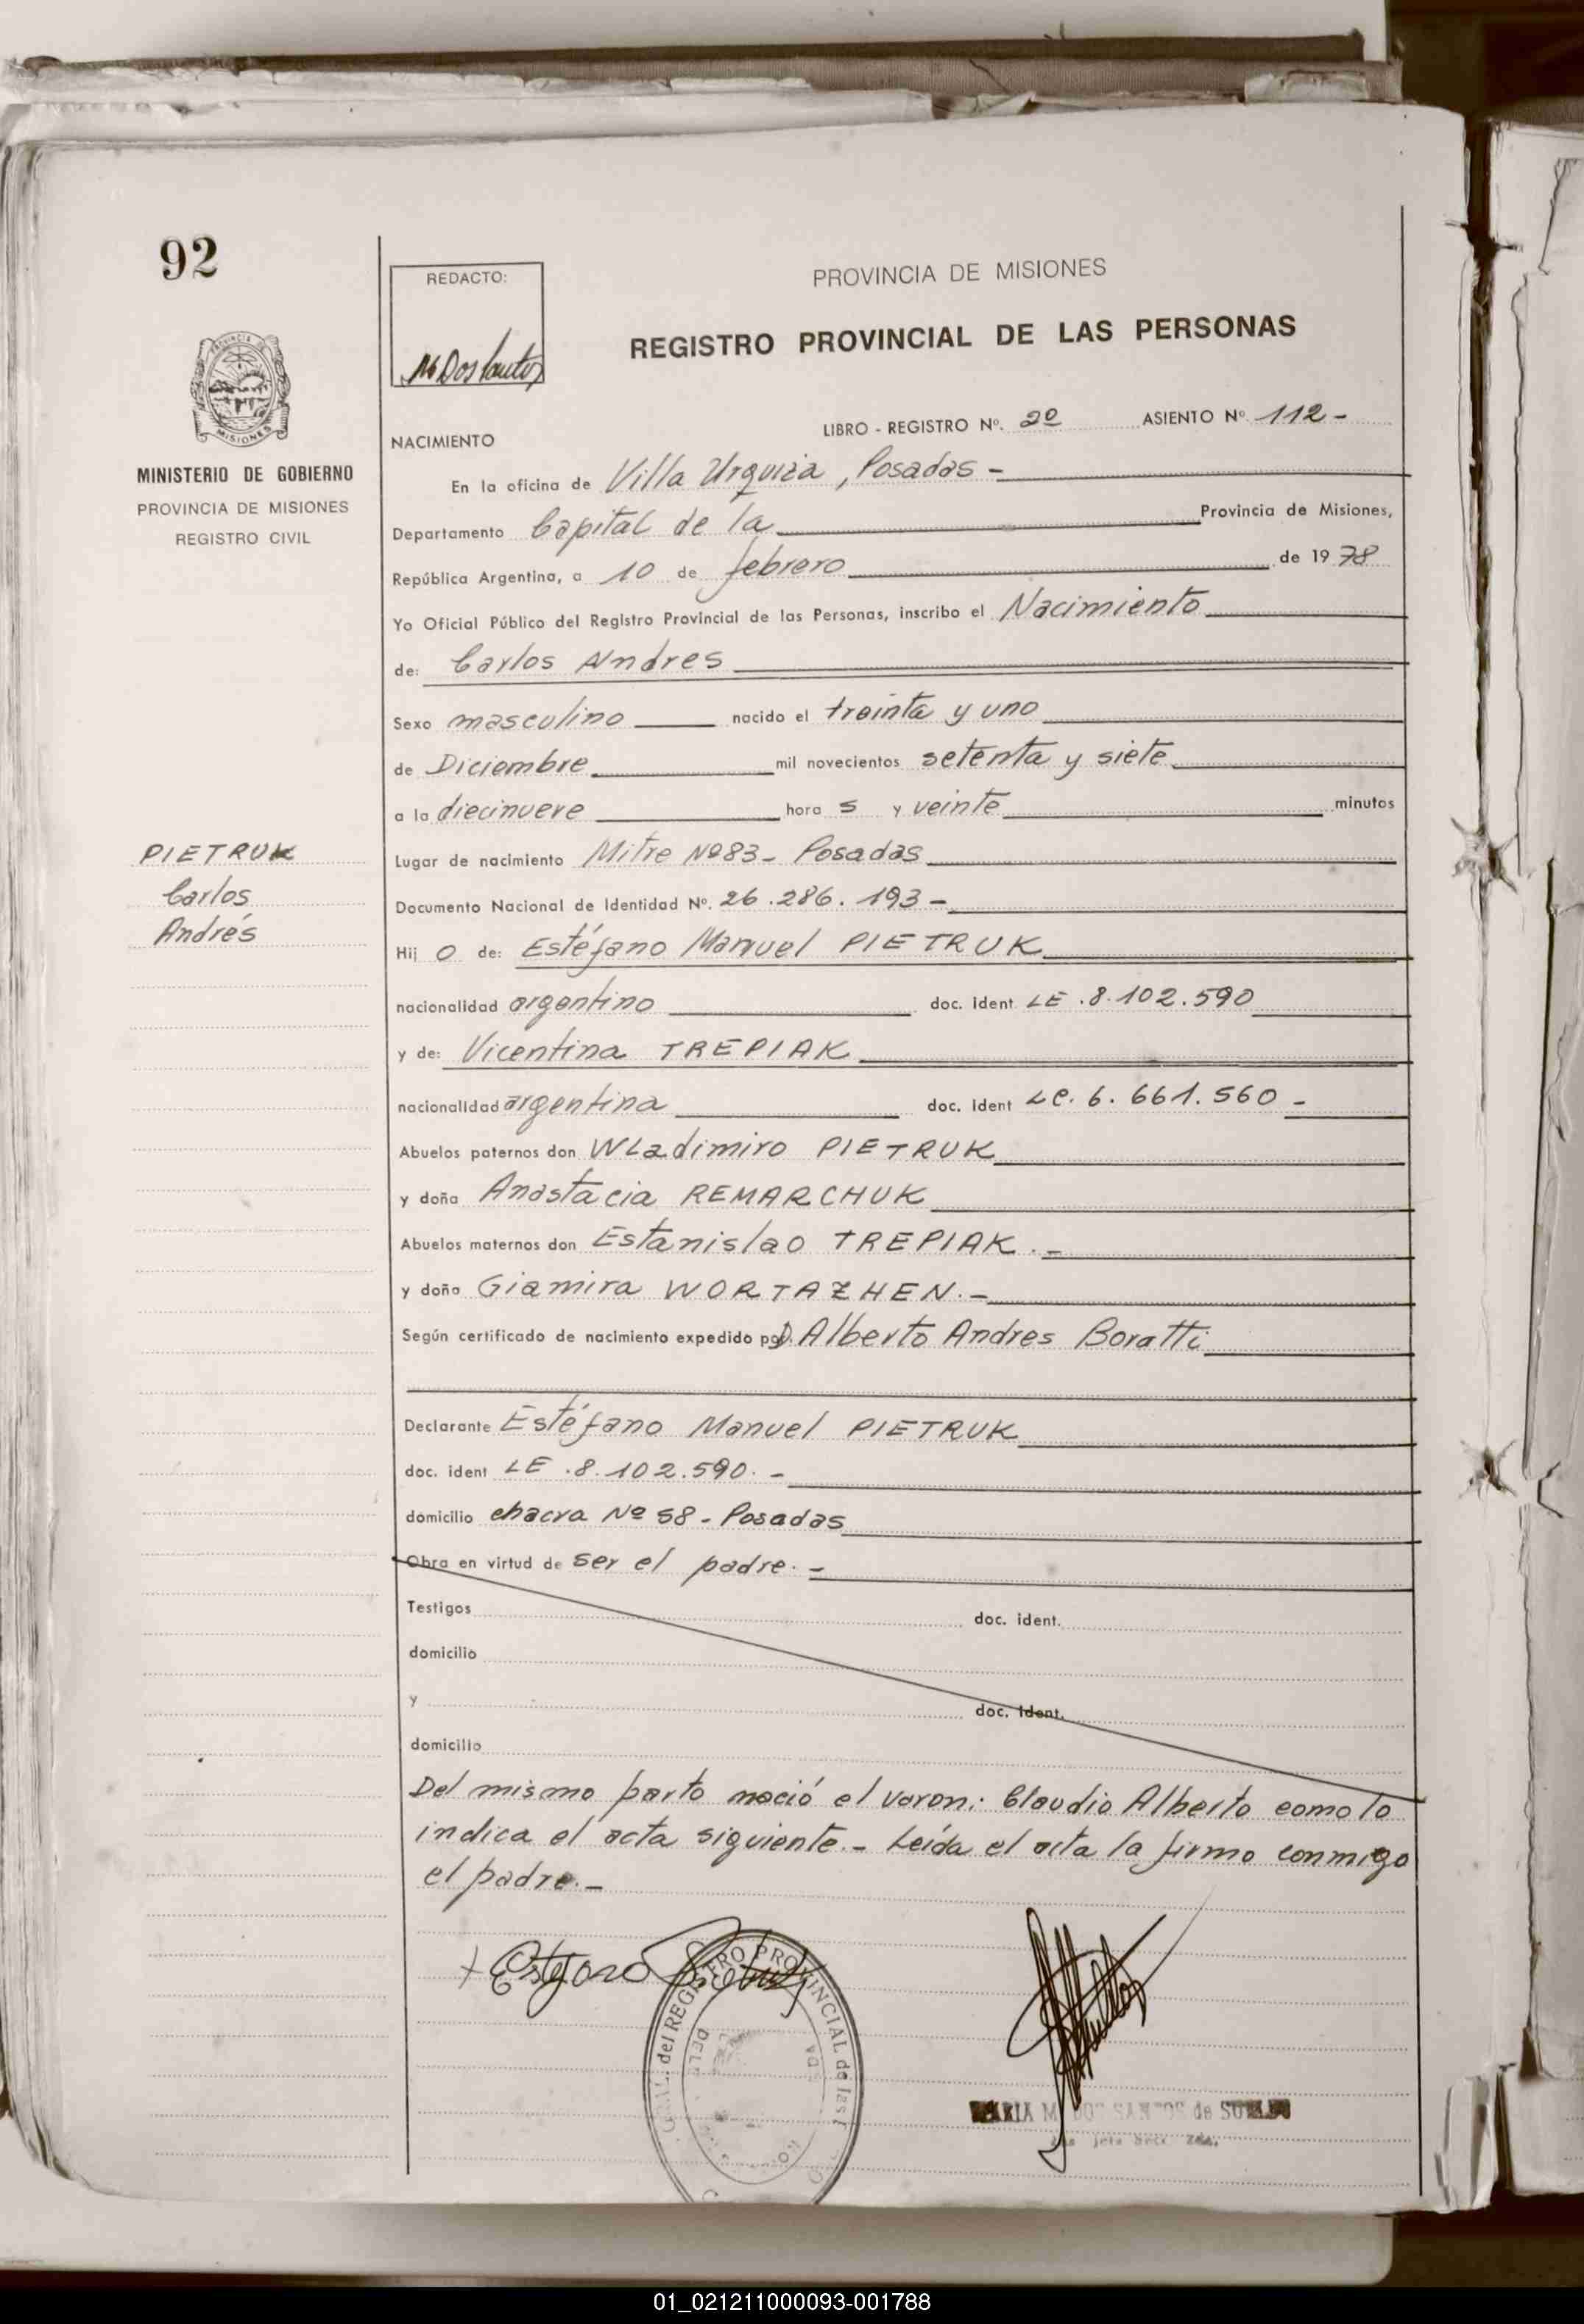 92
REDACTO:
PROVINCIA DE MISIONES
REGISTRO PROVINCIAL DE LAS PERSONAS
MISIONES
MINISTERIO DE GOBIERNO
PROVINCIA DE MISIONES
REGISTRO CIVIL
LIBRO - REGISTRO Nº. 2º ASIENTO Nº. 112 -
NACIMIENTO
En la oficina de Villa Urquiza, Posadas -
Departamento Capital de la Provincia de Misiones,
República Argentina, a 10 de febrero de 1978
Yo Oficial Público del Registro Provincial de las Personas, inscribo el Nacimiento
de: Carlos Andres
Sexo masculino nacido el treinta y uno
de Diciembre mil novecientos setenta y siete
a la diecinueve hora s y veinte minutos
PIETRUK
Carlos
Andrés
Lugar de nacimiento Mitre Nº 83 - Posadas
Documento Nacional de Identidad Nº. 26.286.193 -
Hij o de: Estéfano Manuel PIETRUK
nacionalidad argentino doc. ident LE.8.102.590
y de: Vicentina TREPIAK
nacionalidad argentina doc. ident LC.6.661.560 -
Abuelos paternos don WLadimiro PIETRUK
y doña Anastacia REMARCHUK
Abuelos maternos don Estanislao TREPIAK.-
y doña Giamira WORTAZHEN.-
Según certificado de nacimiento expedido por D. Alberto Andres Boratti
Declarante Estéfano Manuel PIETRUK
doc. ident LE.8.102.590.-
domicilio chacra Nº 58 - Posadas
Obra en virtud de ser el padre.-
Testigos doc. ident.
domicilio
y doc. ident.
domicilio
Del mismo parto nació el varon: Claudio Alberto como lo
indica el acta siguiente.- Leída el acta la firma conmigo
el padre.-
del REGISTRO PROVINCIAL de las
MARIA M. DOS SANTOS de
01_021211000093-001788